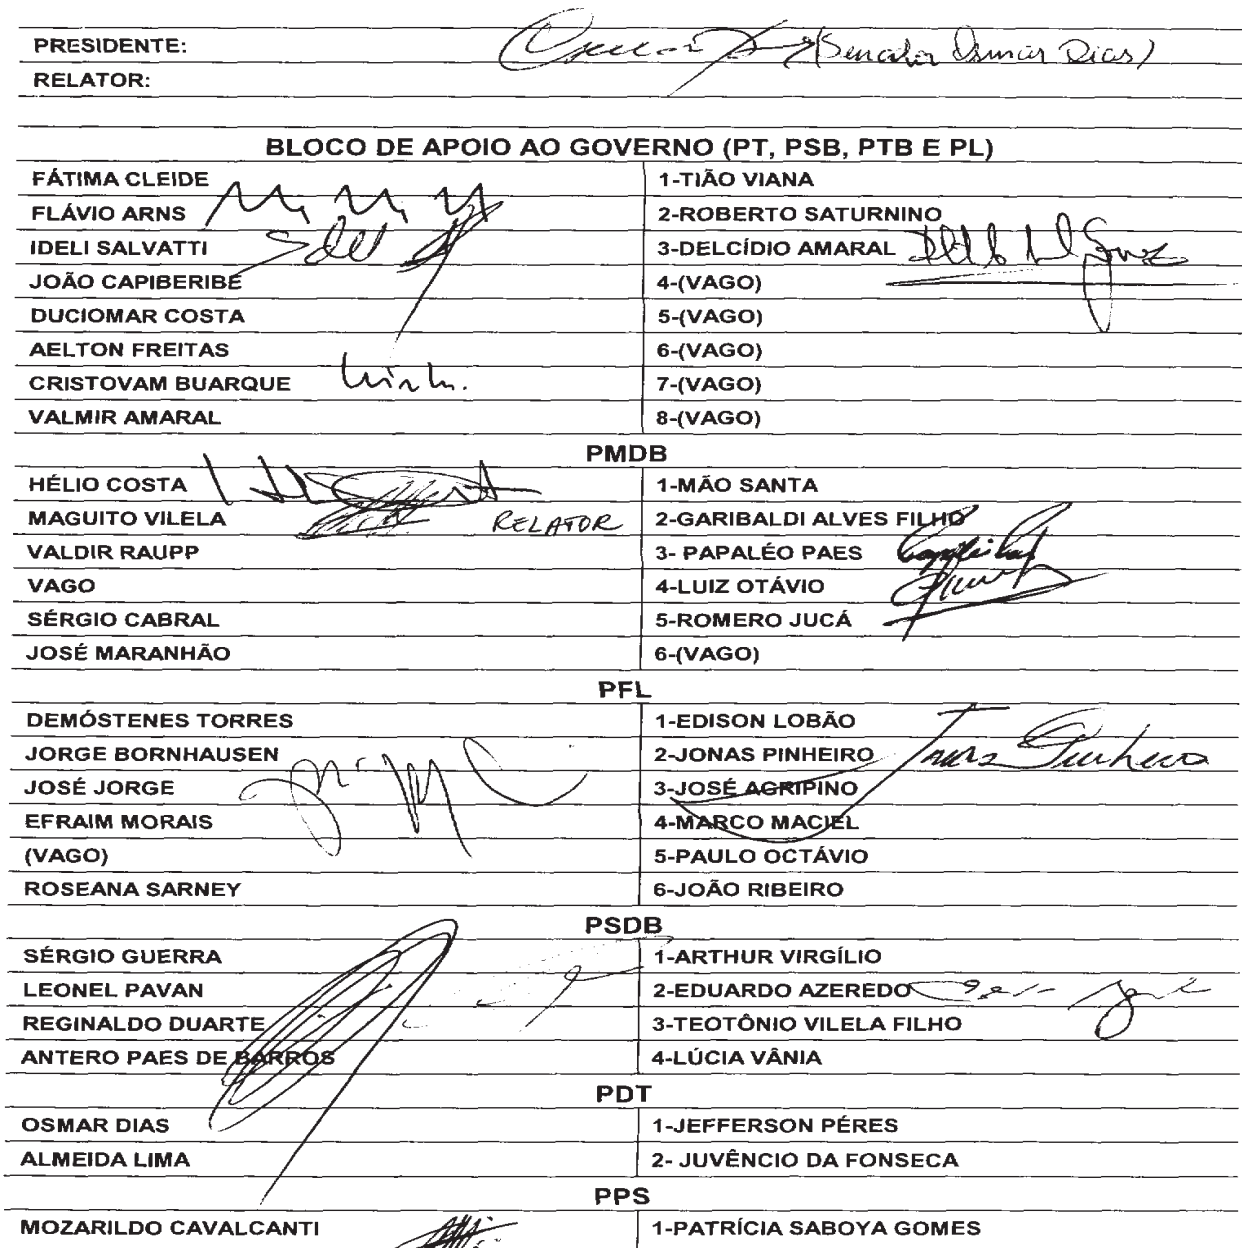 PRESIDENTE: (Senador Osmar Dias)
RELATOR:
BLOCO DE APOIO AO GOVERNO (PT, PSB, PTB E PL)
FÁTIMA CLEIDE 1-TIÃO VIANA
FLÁVIO ARNS 2-ROBERTO SATURNINO
IDELI SALVATTI 3-DELCÍDIO AMARAL
JOÃO CAPIBERIBE 4-(VAGO)
DUCIOMAR COSTA 5-(VAGO)
AELTON FREITAS 6-(VAGO)
CRISTOVAM BUARQUE 7-(VAGO)
VALMIR AMARAL 8-(VAGO)
PMDB
HÉLIO COSTA 1-MÃO SANTA
MAGUITO VILELA RELATOR 2-GARIBALDI ALVES FILHO
VALDIR RAUPP 3- PAPALÉO PAES
VAGO 4-LUIZ OTÁVIO
SÉRGIO CABRAL 5-ROMERO JUCÁ
JOSÉ MARANHÃO 6-(VAGO)
PFL
DEMÓSTENES TORRES 1-EDISON LOBÃO
JORGE BORNHAUSEN 2-JONAS PINHEIRO Jonas Pinheiro
JOSÉ JORGE 3-JOSÉ AGRIPINO
EFRAIM MORAIS 4-MARCO MACIEL
(VAGO) 5-PAULO OCTÁVIO
ROSEANA SARNEY 6-JOÃO RIBEIRO
PSDB
SÉRGIO GUERRA 1-ARTHUR VIRGÍLIO
LEONEL PAVAN 2-EDUARDO AZEREDO
REGINALDO DUARTE 3-TEOTÔNIO VILELA FILHO
ANTERO PAES DE BARROS 4-LÚCIA VÂNIA
PDT
OSMAR DIAS 1-JEFFERSON PÉRES
ALMEIDA LIMA 2- JUVÊNCIO DA FONSECA
PPS
MOZARILDO CAVALCANTI 1-PATRÍCIA SABOYA GOMES